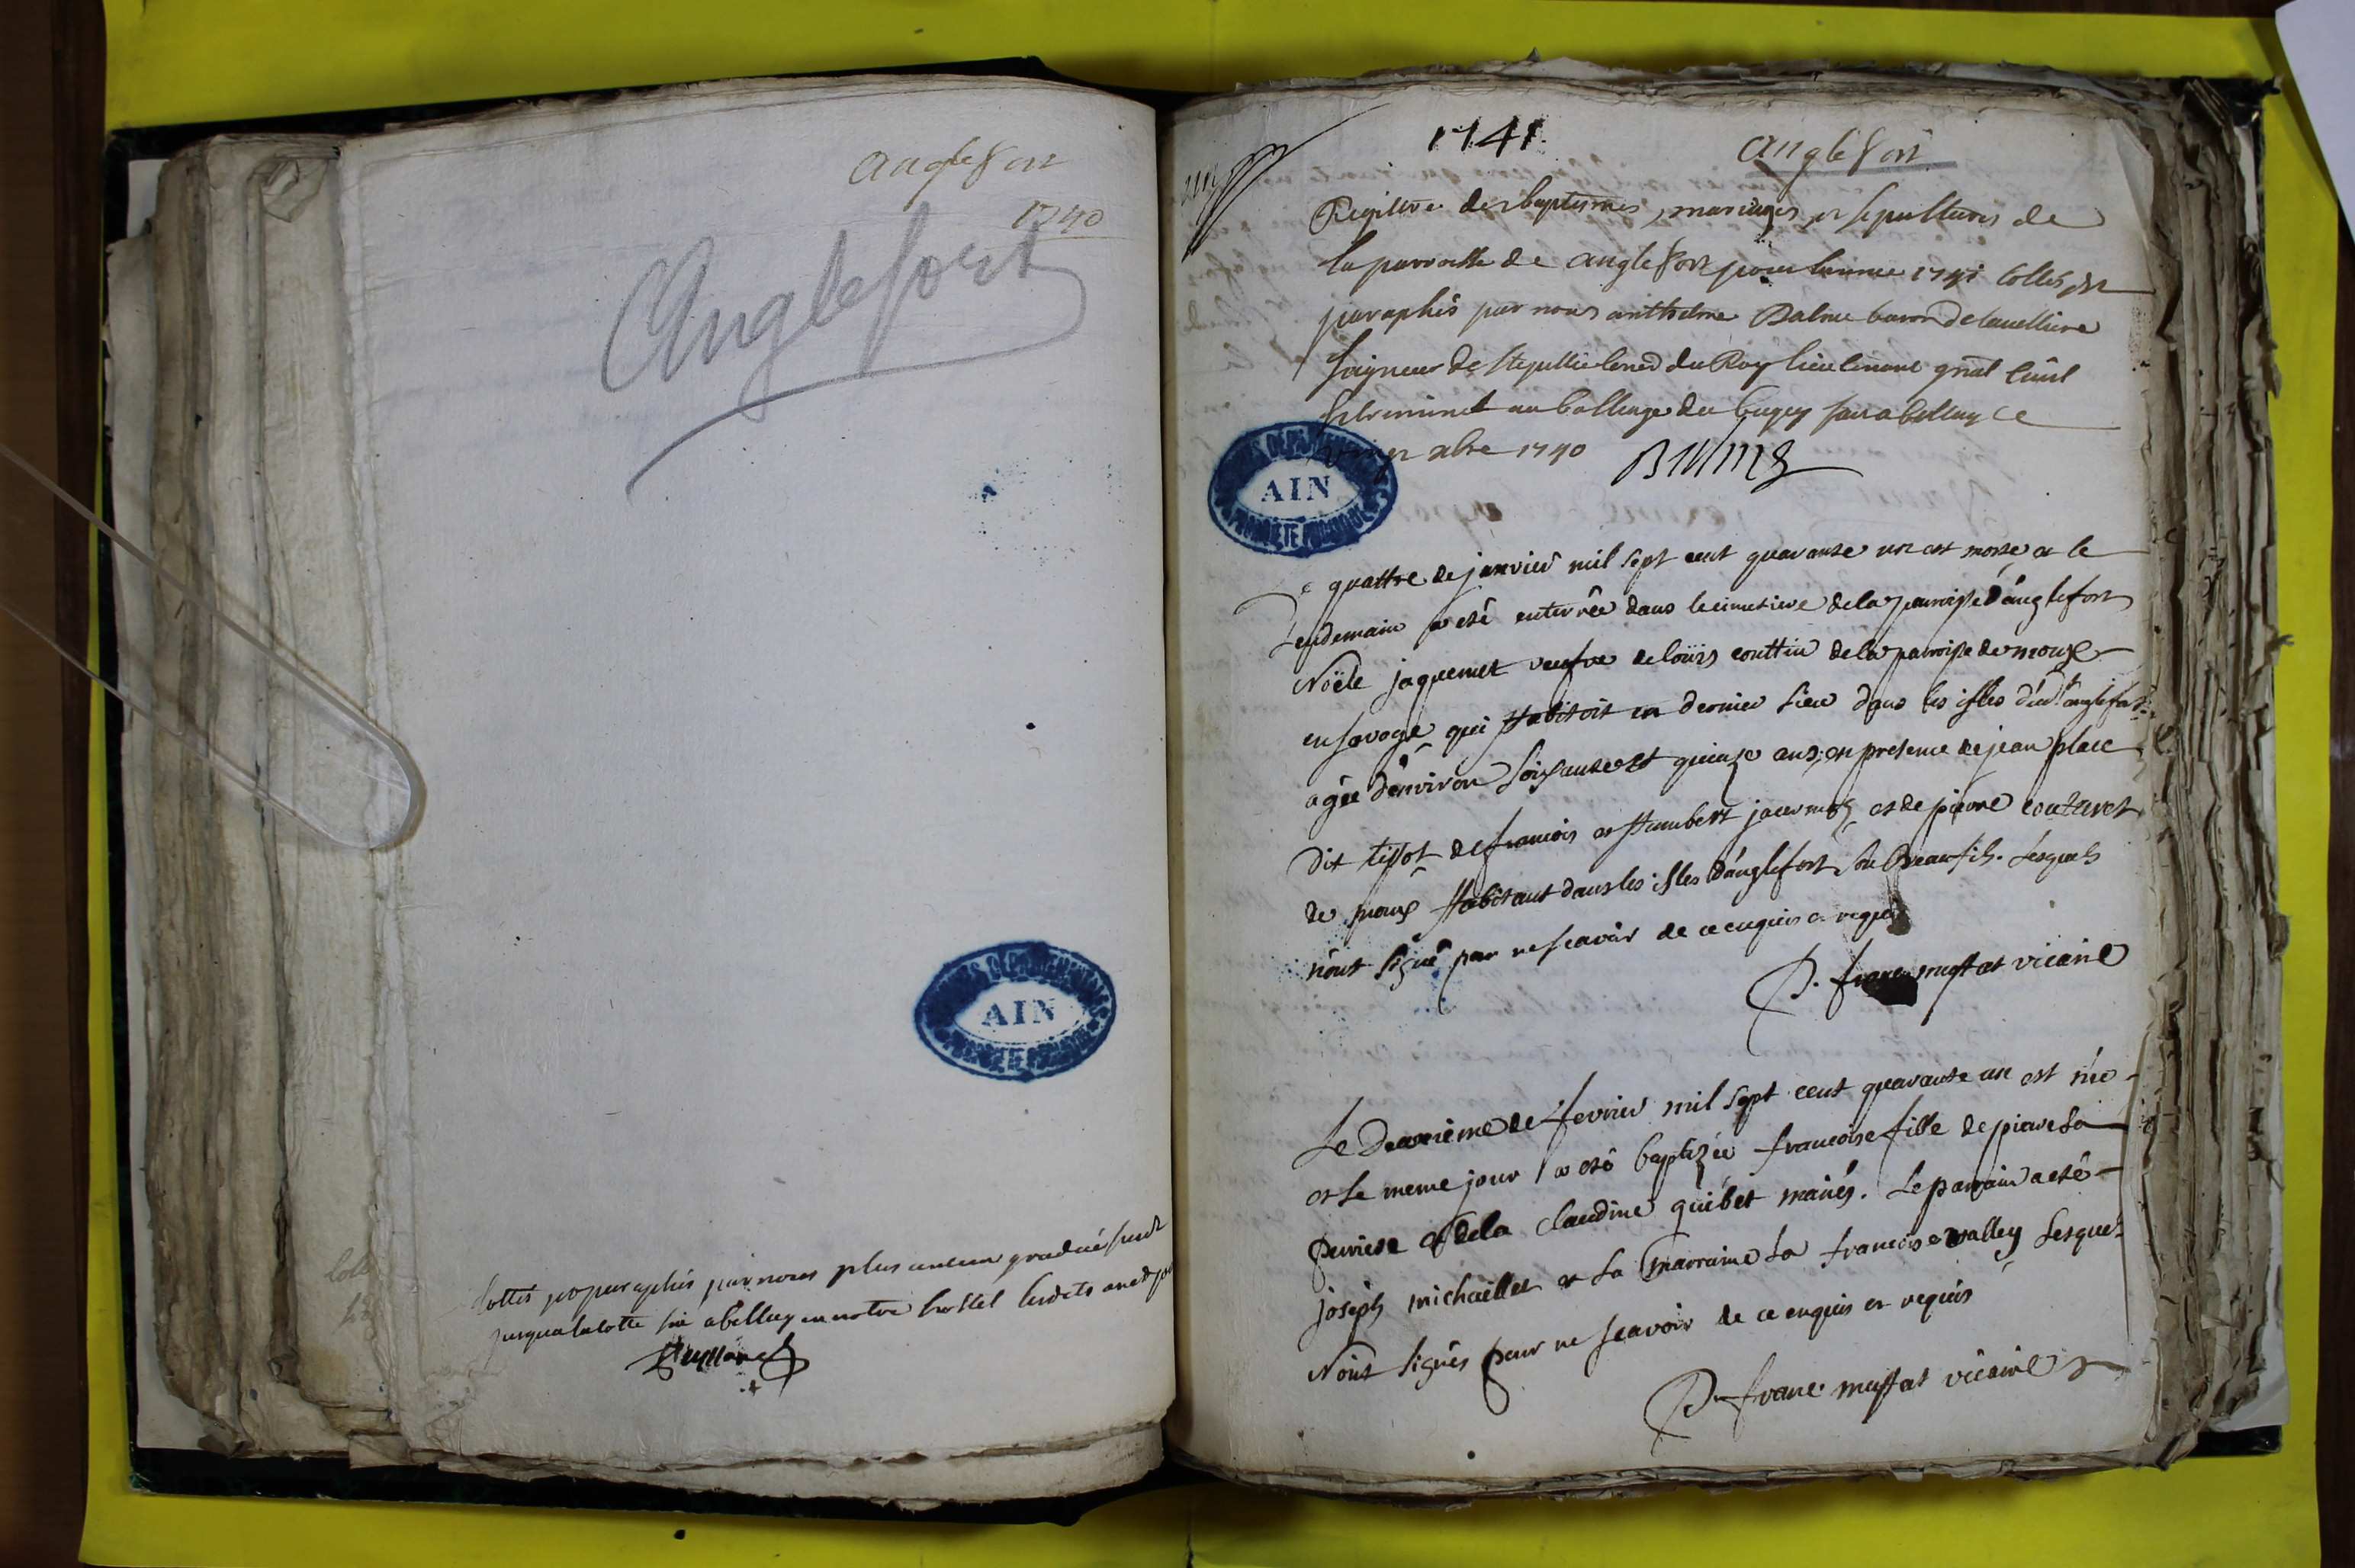 Anglefort
1740
Anglefort
AIN
Cottés et paraphés par nous plus ancien gradué
jusqua la cotte fait a belley en notre hostel
1741.
Anglefort
Registre des baptemes, mariages et sepultures de
la parroisse de anglefort pour lannee 1741 Cottés et
paraphés par nous anthelme Balme baron de
seigneur de Ste jullie du Roy lieutenant gnal civil
criminel au balliage du bugey fait a belley ce
xbre 1740 Balme
AIN
e quattre de janvier mil sept cent quarante un est morte et le
Lendemain a eté enterrée dans le cimetiere de la parroisse d'anglefort
Noële jaquemet veufve de loüis couttin de la parroisse de moux
en savoye qui Habitoit en dernier lieu dans les isles dud.t anglefort
agée d'environ soixante et quinze ans, en presence de jean place
dit tissot de francois et Humbert et de pierre
de moux Habitant dans les isles d'anglefort son Beaufils. Lesquels
n'ont signé pour ne scavoir de ce enquis et requis
P. franc muffat vicaire
Le deuxieme de fevrier mil sept cent quarante un est née
et le meme jour a eté baptizée francoise fille de pierre La
perriere et de la Claudine quibet mariés. Le parrain a eté
joseph michaillet et la marraine la francoise valley Lesquels
N'ont signés pour ne scavoir de ce enquis et requis
P. franc. muffat vicaire